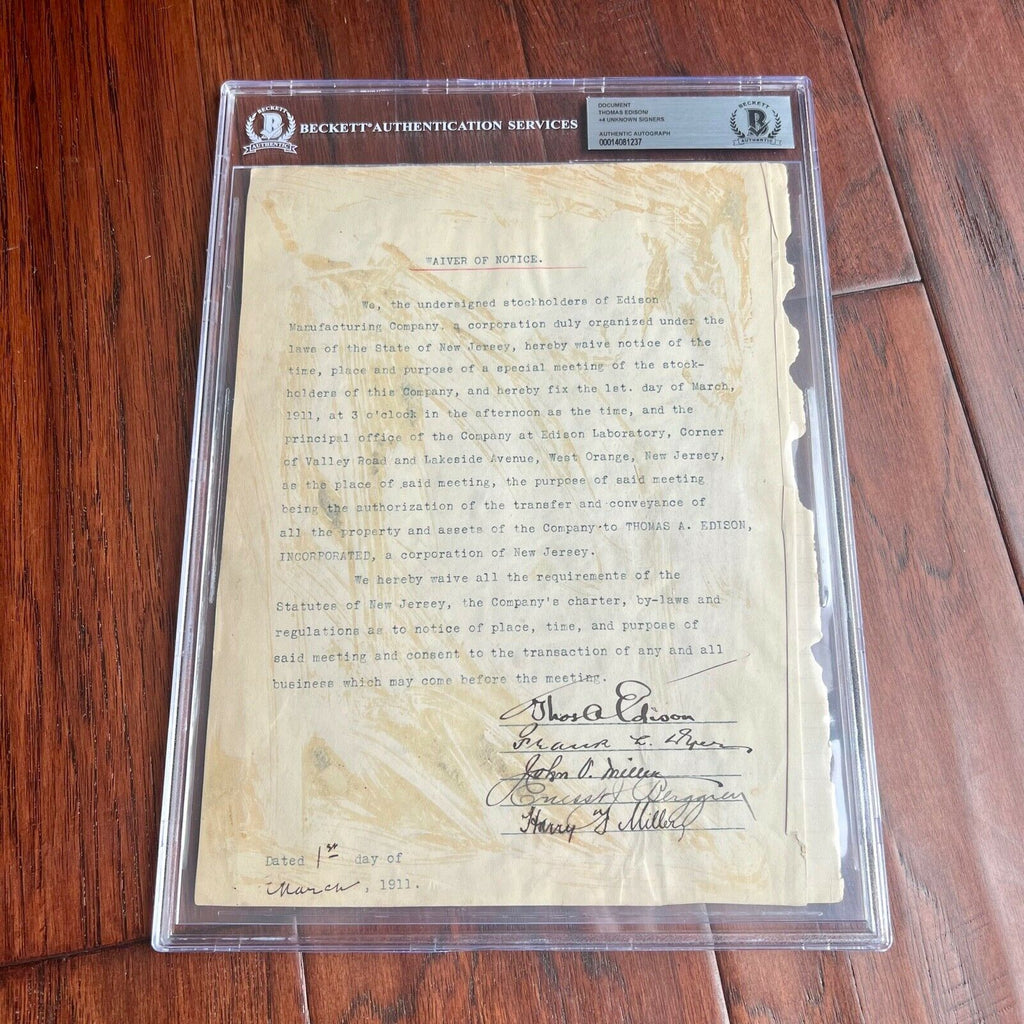 BECKETT
AUTHENTIC
BECKETT AUTHENTICATION SERVICES
DOCUMENT
THOMAS EDISON/
+4 UNKNOWN SIGNERS
AUTHENTIC AUTOGRAPH
00014081237
BECKETT
AUTHENTIC
WAIVER OF NOTICE.
We, the undersigned stockholders of Edison
Manufacturing Company, a corporation duly organized under the
laws of the State of New Jersey, hereby waive notice of the
time, place and purpose of a special meeting of the stock-
holders of this Company, and hereby fix the 1st. day of March,
1911, at 3 o'clock in the afternoon as the time, and the
principal office of the Company at Edison Laboratory, Corner
of Valley Road and Lakeside Avenue, West Orange, New Jersey,
as the place of said meeting, the purpose of said meeting
being the authorization of the transfer and conveyance of
all the property and assets of the Company to THOMAS A. EDISON,
INCORPORATED, a corporation of New Jersey.
We hereby waive all the requirements of the
Statutes of New Jersey, the Company's charter, by-laws and
regulations as to notice of place, time, and purpose of
said meeting and consent to the transaction of any and all
business which may come before the meeting.
Thos A Edison
Frank L. Dyer
John V. Miller
Ernest J Berggren
Harry F Miller
Dated 1st day of
March, 1911.